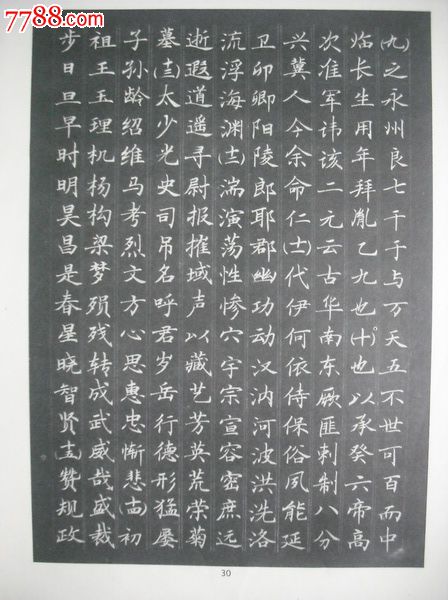 7788.com
(九)之永州良七干于与万天五不世可百而中
临长生用年拜胤乙九也(十)也以承癸六帝高
次准军讳该二元云古华南东厥匪刺制八分
兴冀人今余命仁(十一)代伊何依侍保俗夙能延
卫卯卿阳陵郎耶郡幽功动汉汭河波洪洗洛
流浮海渊(十二)湍演荡性惨穴宇宗宣容密庶远
逝遐道遥寻尉报摧域声以藏艺芳英荒荣菊
墓(十三)太少光史司吊名呼君岁岳行德形猛屡
子孙龄绍维马考烈文方心思惠忠惭悲(十四)初
祖王玉理机杨构梁梦殒残转成武威哉盛裁
步日旦早时明昊昌是春星晓智贤(十五)赞规政
30